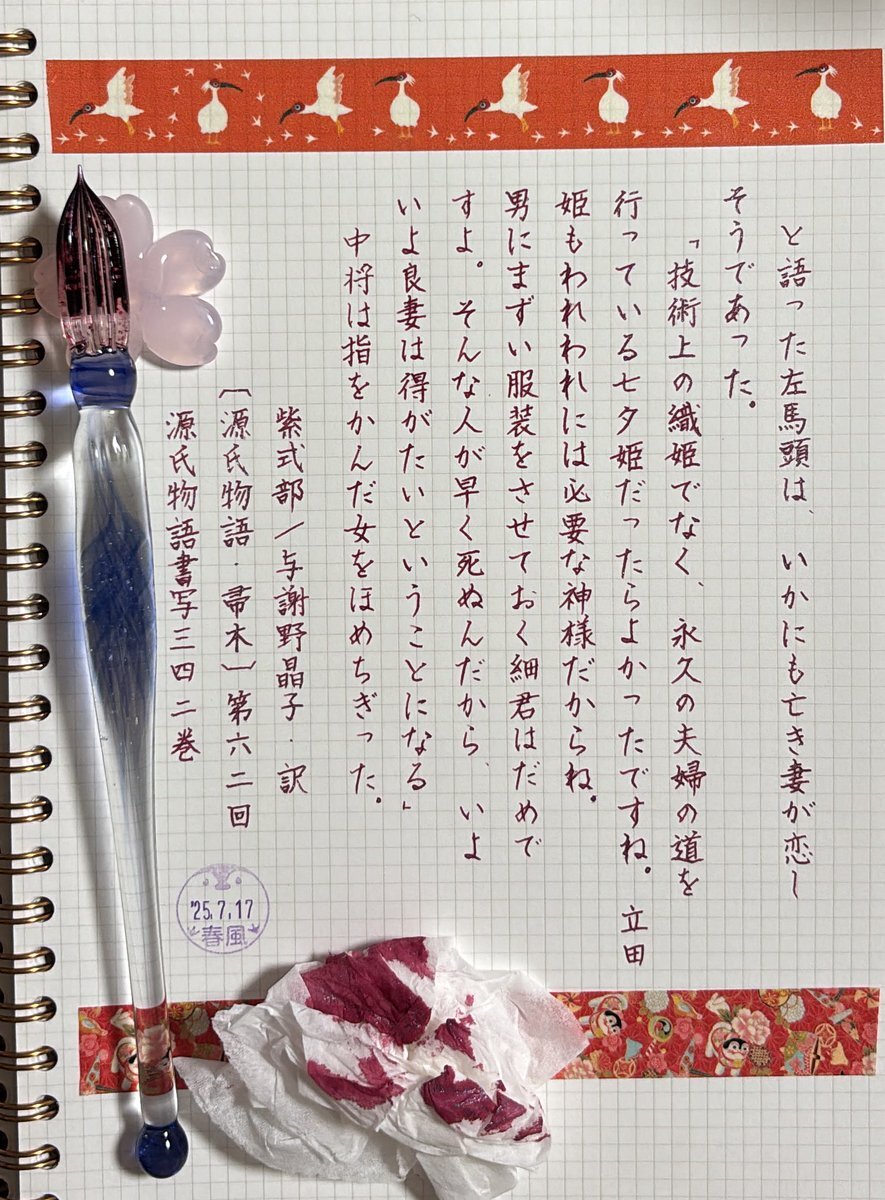 と語った左馬頭は、いかにも亡き妻が恋し
そうであった。
「技術上の織姫でなく、永久の夫婦の道を
行っている七夕姫だったらよかったですね。立田
姫もわれわれには必要な神様だからね。
男にまずい服装をさせておく細君はだめで
すよ。そんな人が早く死ぬんだから、いよ
いよ良妻は得がたいということになる」
中将は指をかんだ女をほめちぎった。
紫式部／与謝野晶子・訳
〔源氏物語・帚木〕第六二回
源氏物語書写三四二巻
'25.7.17
春風